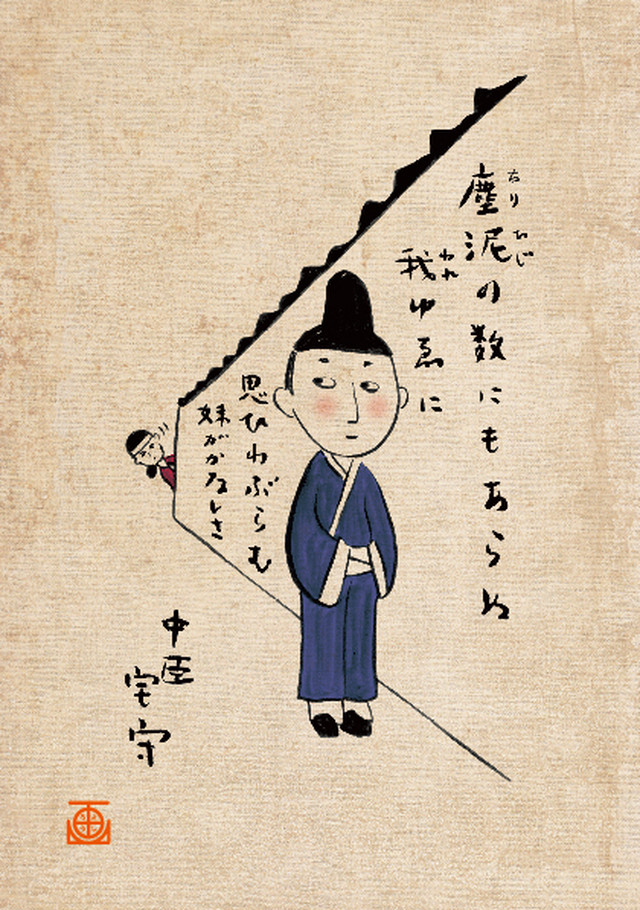 塵泥の数にもあらぬ
ちりひじ
我ゆゑに
われ
思ひわぶらむ
妹がかなしさ
中臣
宅守